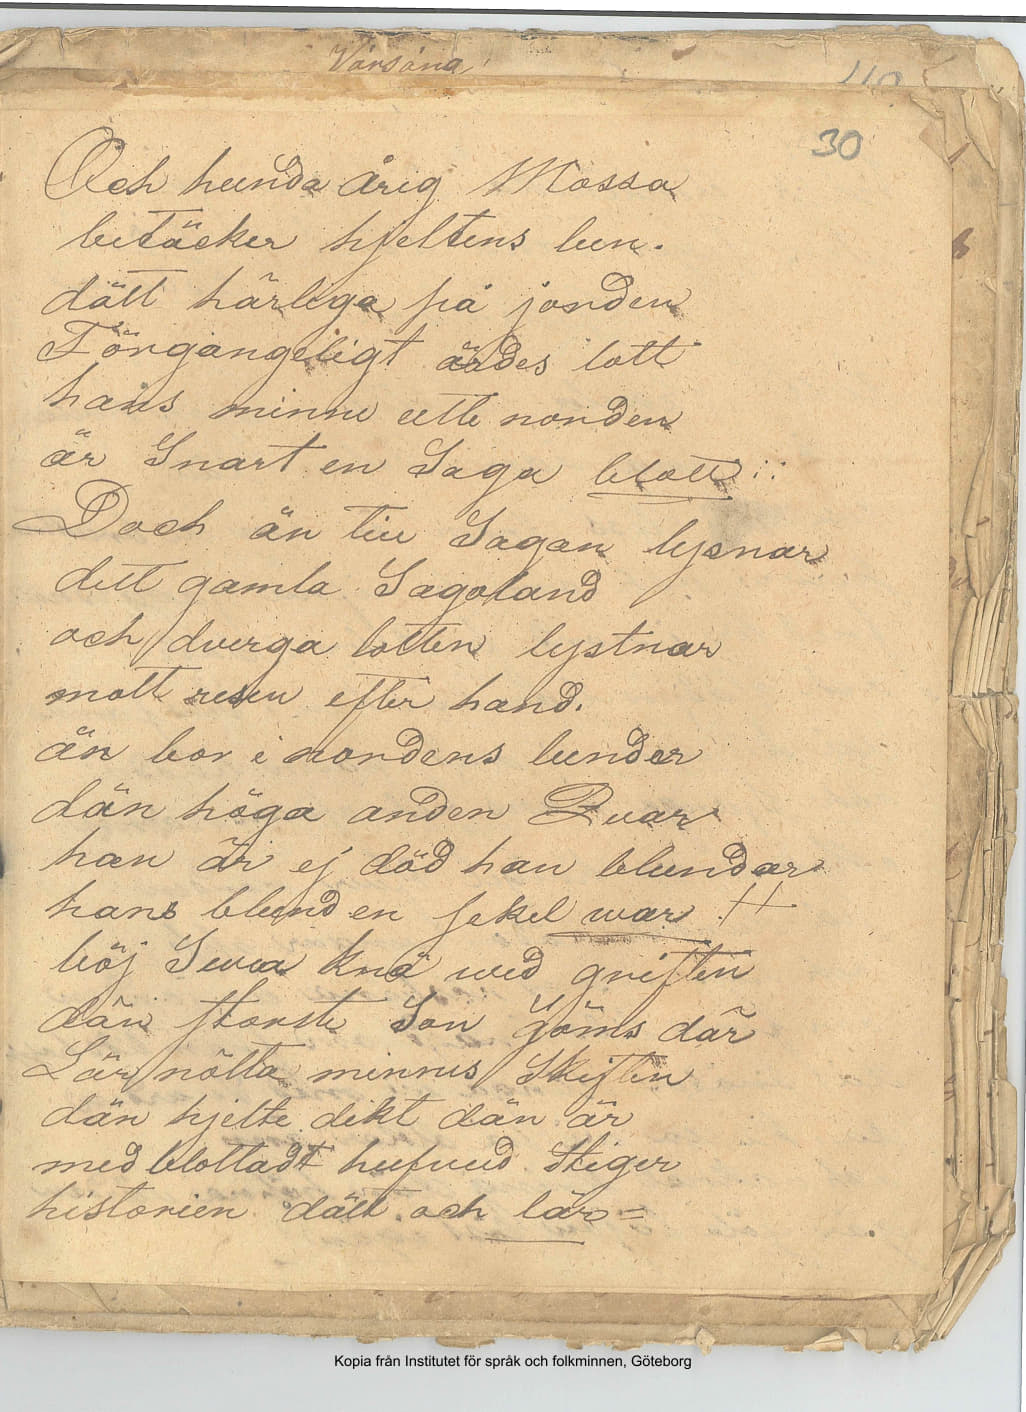 Vårsåna
110
30
Och hunda årig Mossa
betäcker hjeltens ben.
dätt härliga på jorden
Förgängeligt ärdes lott
hans minne utti norden
är Snart en Saga blott :
Doch än till Sagan lysnar
dett gamla Sagoland
och dverga lotten lystnar
mott resen efter hand.
än bor i nordens lunder
dän höga anden Qvar
han är ej död han blundar
hans blund en sekel war
böj Svea Knä wed griften
dän störste Son göms där
Lär nötta minnes Skiften
dän hjelte dikt dän är
med blottadt hufvud Stiger
historien dätt och lär=
Kopia från Institutet för språk och folkminnen, Göteborg